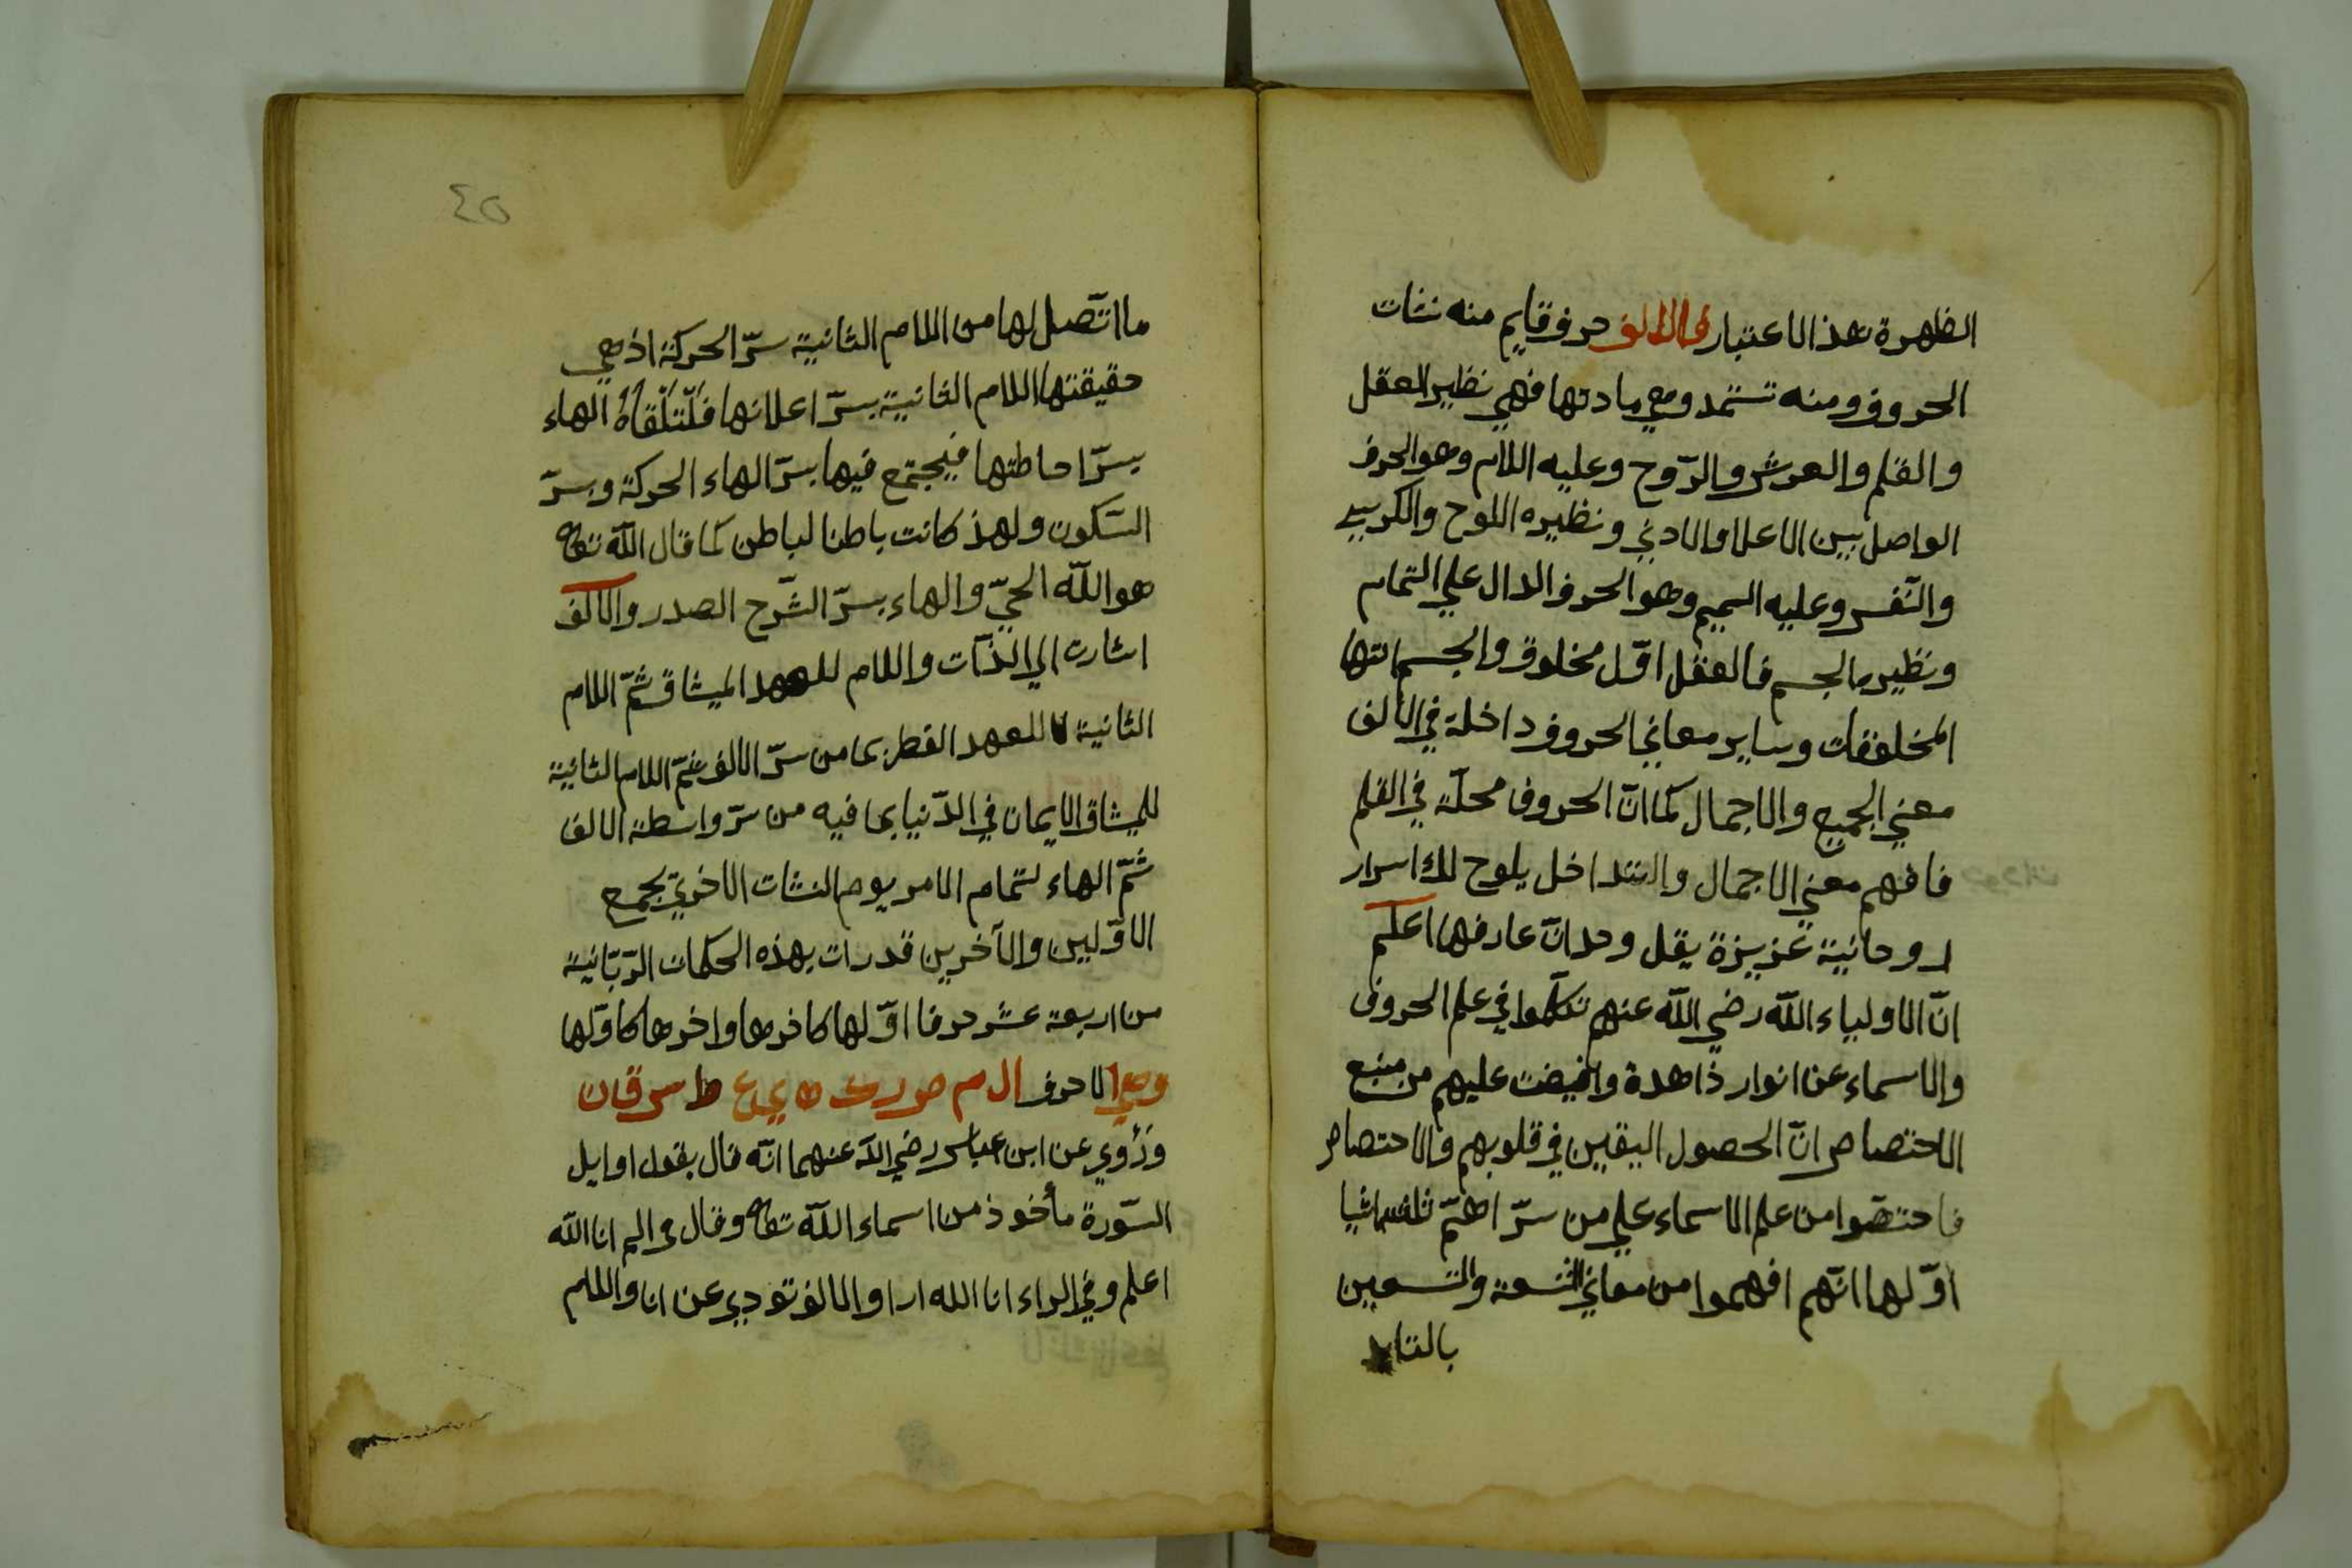 الظهرة هذا الاعتبار والالف حرف قايم منه نشات
الحروف ومنه تستمد وهي مادتها فهي نظير العقل
والقلم والعرش والرّوح وعليه اللام وهو الحرف
الواصل بين الاعلا والادني ونظيره اللوح والكرسي
والنّفس وعليه الميم وهو الحرف الدال علي التمام
ونظيرها الجسم فالعقل اوّل مخلوق والجسم
وساير معاني الحروف داخلة في الالف
معني الجميع والاجمال كما انّ الحروف محلّة في القلم
فافهم معني الاجمال والتداخل يلوح لك اسرار
روحانية عزيزة يقل وحدانّ عارفها اعلم
انّ الاولياء اللّه رضي اللّه عنهم تكلّموا في علم الحروف
والاسماء عن انوار ذاهدة وافيضت عليهم من منبع
الاختصاص انّ الحصول اليقين في قلوبهم والاختصاص
فاختصّوا من علم الاسماء علي من سرّ
اوّلها انّهم افهموا من معاني التسعة والتسعين
٤٥
ما اتّصل لها من اللام الثانية سرّ الحركة اذ هي
حقيقتها اللام الثانية بسرّ اعلانها فلتلقاه الهاء
بسرّ احاطتها فيجتمع فيها بسرّ الهاء الحركة وبسرّ
السّكون ولهذ كانت باطنا لباطن كما قال اللّه تعالى
هو اللّه الحيّ والهاء بسرّ الشّرح الصدر والالف
اشارت الي الذّات واللام للعهد الميثاق ثمّ اللام
الثانية للعهد الفطر بما من سرّ الالف ثمّ اللام الثانية
للميثاق الايمان في الدّنيا بما فيه من سرّ واسطة الالف
ثمّ الهاء لتمام الامر يوم النشات الاخريّ بجمع
الاوّلين والآخرين قد رات بهذه الحكمات الرّبّانية
من اربعة عشر حرفا اوّلها كاخرها واخرها كاوّلها
وهي الاحرف ال م ص ر ك ه ي ع ط س ق ن
وروي عن ابن عباس رضي اللّه عنهما انّه قال بقول اوايل
السّورة مأخوذ من اسماء اللّه تعالى وقال في الم انا اللّه
اعلم وفي الراء انا الله ارا والالف تودي عن انا واللام